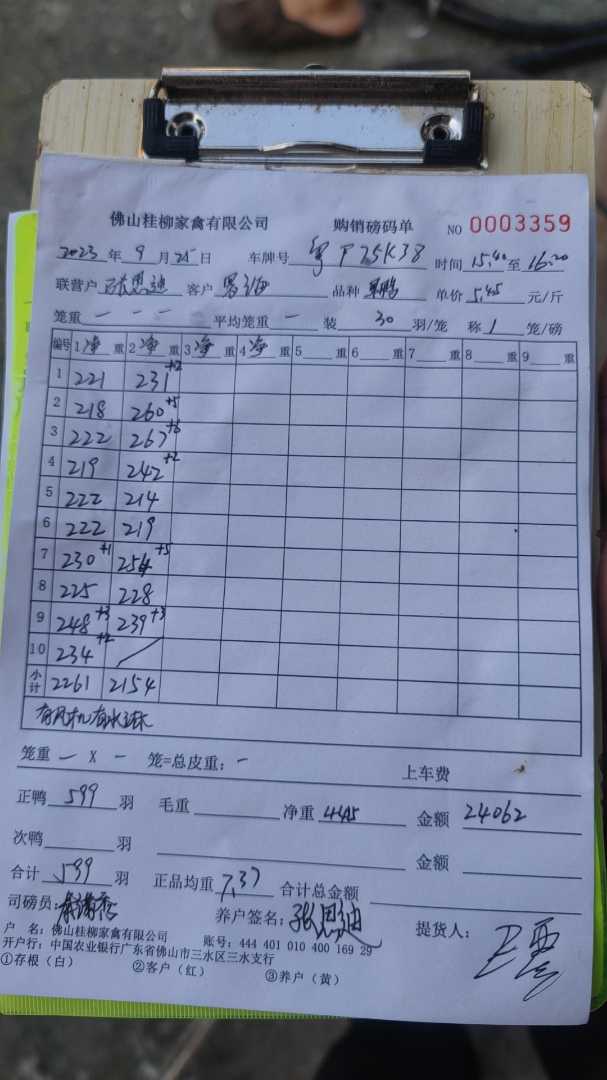 佛山桂柳家禽有限公司 购销磅码单 NO 0003359
2023 年 9 月 25 日 车牌号 粤P75K38 时间 15.40 至 16.20
联营户 张恩迪 客户 品种 单价 5.45 元/斤
笼重 — — — 平均笼重 — 装 30 羽/笼 称 1 笼/磅
编号 1 净 重 2 净 重 3 净 重 4 净 重 5 重 6 重 7 重 8 重 9 重
1 221 231 +2
2 218 260 +5
3 222 267 +6
4 219 242 +2
5 222 214
6 222 219
7 230 +1 254 +5
8 225 228
9 248 +3 239 +3
10 234 +2
小计 2261 2154
笼重 — X — 笼=总皮重: — 上车费
正鸭 599 羽 毛重 净重 4415 金额 24062
次鸭 羽 金额
合计 599 羽 正品均重 7.37 合计总金额
司磅员: 养户签名: 张恩迪 提货人:
户 名: 佛山桂柳家禽有限公司 账号: 444 401 010 400 169 29
开户行: 中国农业银行广东省佛山市三水区三水支行
①存根（白） ②客户（红） ③养户（黄）